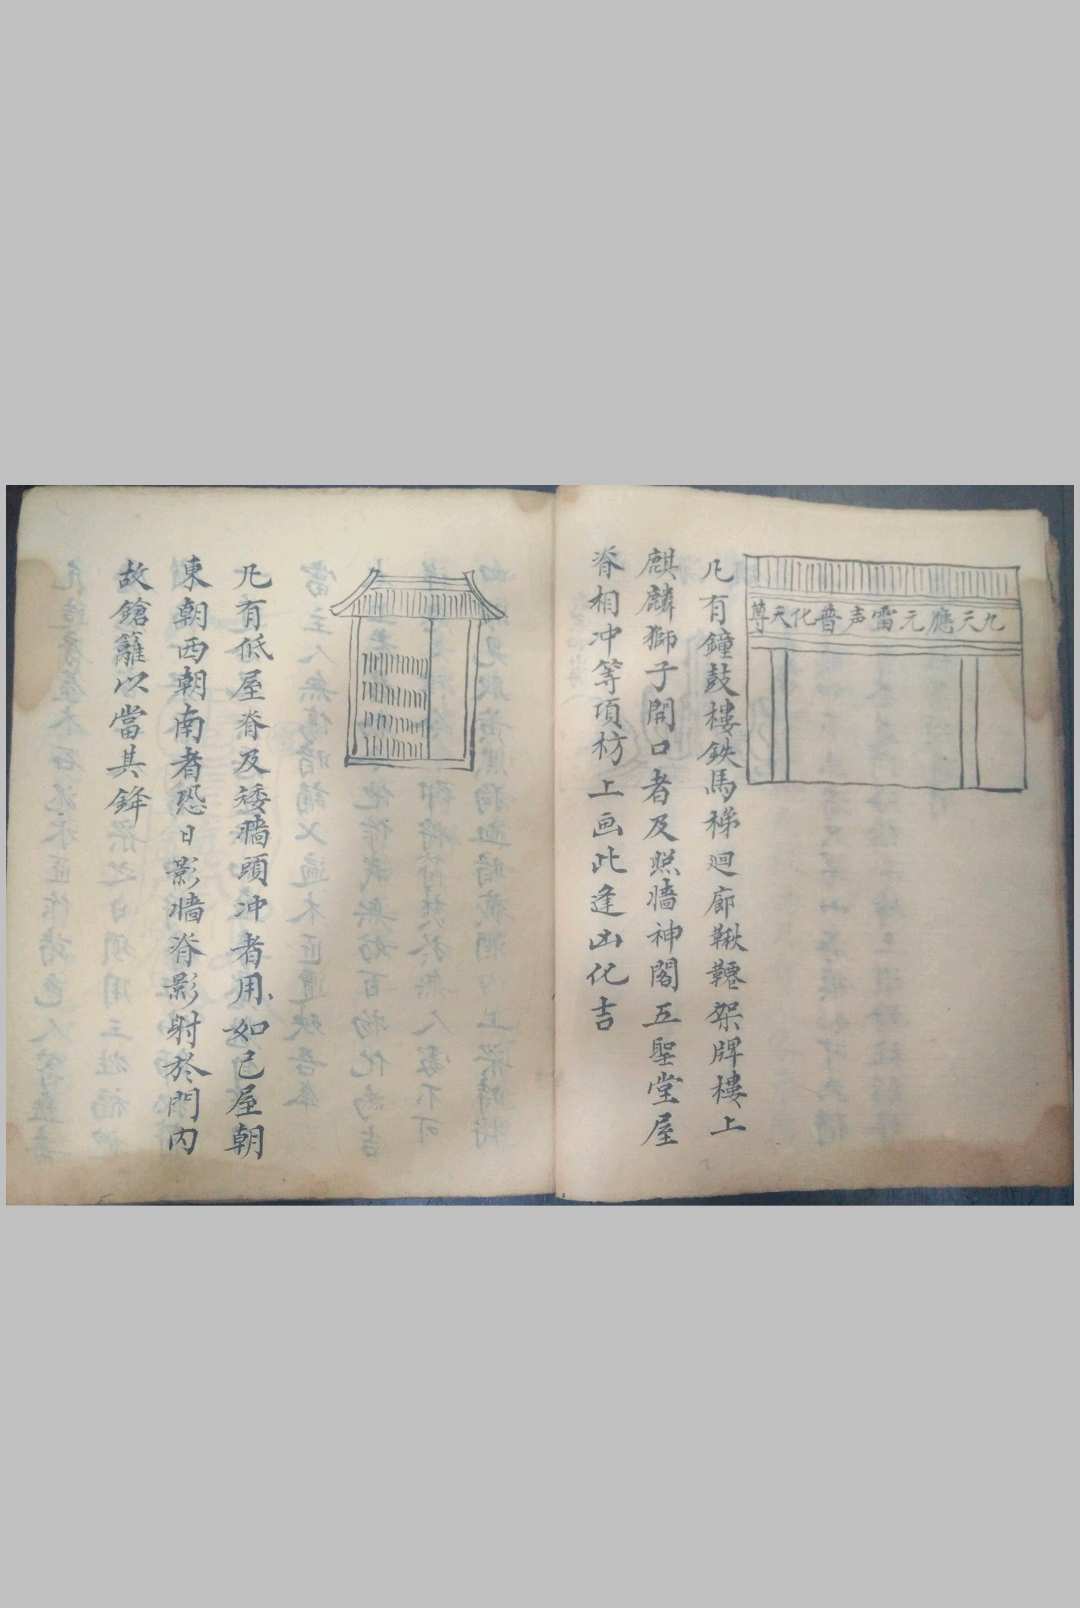 九天應元雷声普化天尊
凡有鐘鼓樓鉄馬梯廻廊鞦韆架牌樓上
麒麟獅子開口者及照墻神閣五聖堂屋
脊相冲等項枋上画此逢凶化吉
凡有低屋脊及矮墻頭冲者用如已屋朝
東朝西朝南者恐日影墻脊影射於門内
故鎗籬以當其鋒